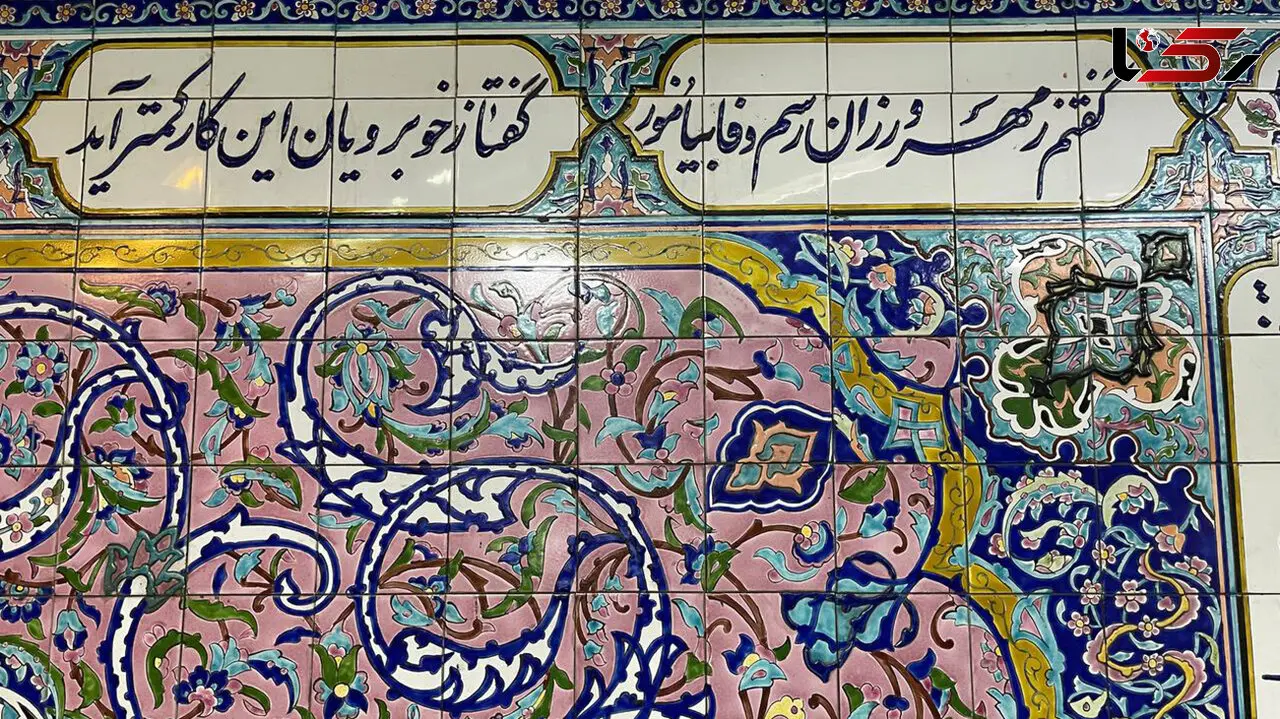 رکنا
گفتم ز مهرورزان رسم وفا بیاموز
گفتا ز خوبرویان این کار کمتر آید